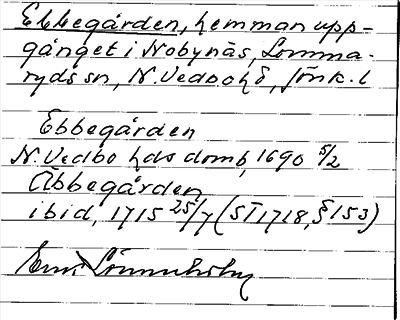 Ebbegården, hemman upp-
gånget i Nobynäs, Lomma-
ryds sn, N. Vedbo hd, Jönk. l
Ebbegården
N. Vedbo hds domb, 1690 5/2
Abbegården
ibid, 1715 25/7 (ST 1718, § 153)